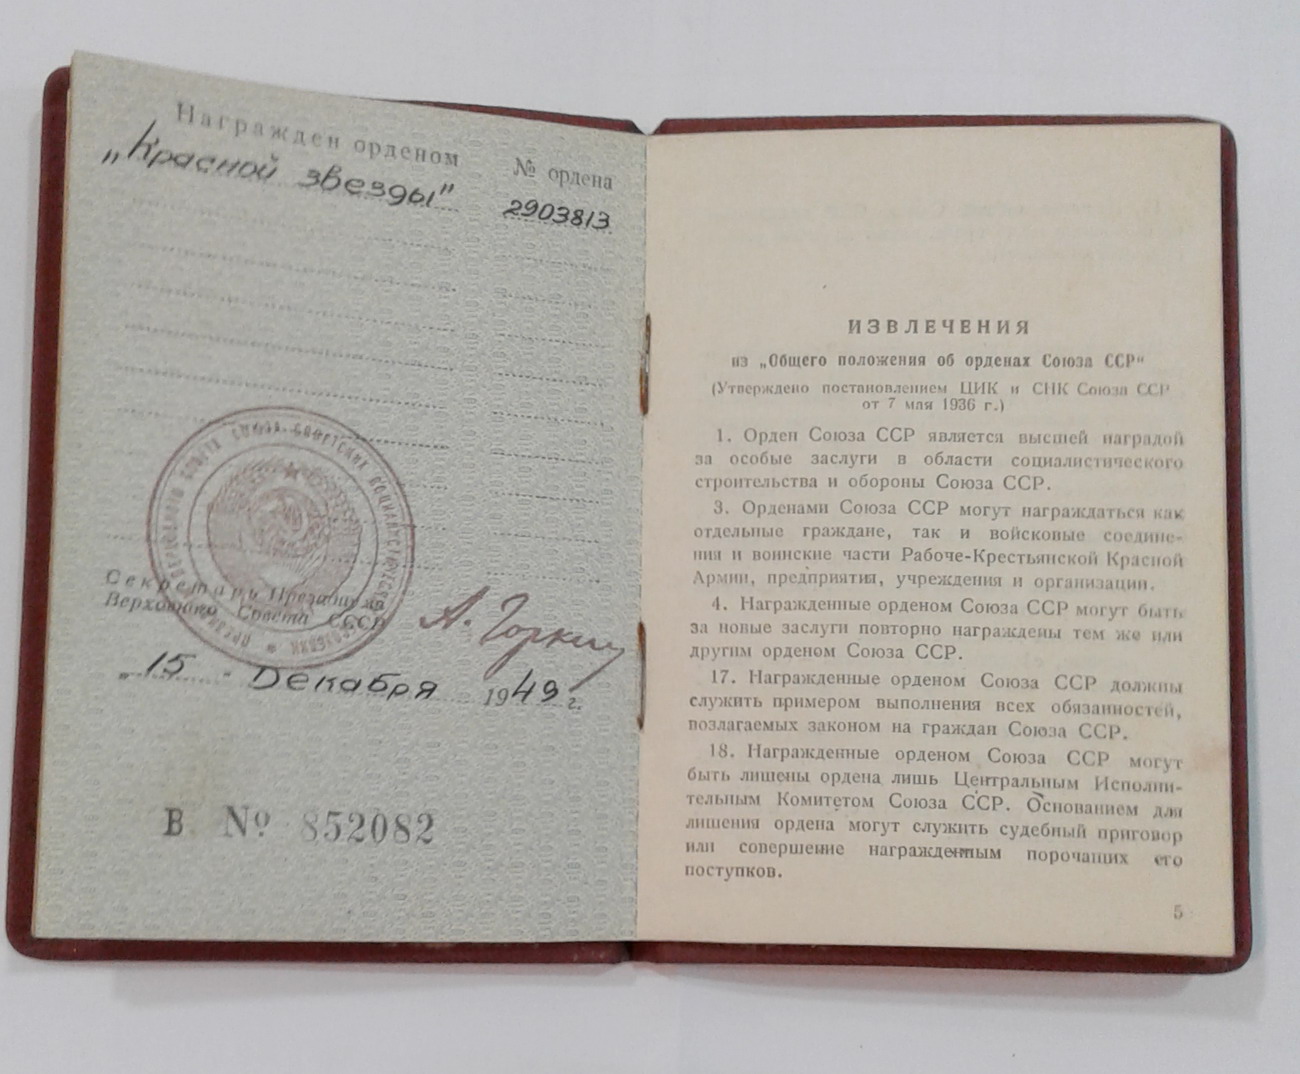 Награжден орденом
№ ордена
„Красной звезды"
2903813
ПРЕЗИДИУМ ВЕРХОВНОГО СОВЕТА СОЮЗА СОВЕТСКИХ СОЦИАЛИСТИЧЕСКИХ РЕСПУБЛИК
Секретарь Президиума
Верховного Совета СССР
А. Горкин
„15 - Декабря 1949 г.
В № 852082
ИЗВЛЕЧЕНИЯ
из „Общего положения об орденах Союза ССР"
(Утверждено постановлением ЦИК и СНК Союза ССР
от 7 мая 1936 г.)
1. Орден Союза ССР является высшей наградой
за особые заслуги в области социалистического
строительства и обороны Союза ССР.
3. Орденами Союза ССР могут награждаться как
отдельные граждане, так и войсковые соедине-
ния и воинские части Рабоче-Крестьянской Красной
Армии, предприятия, учреждения и организации.
4. Награжденные орденом Союза ССР могут быть
за новые заслуги повторно награждены тем же или
другим орденом Союза ССР.
17. Награжденные орденом Союза ССР должны
служить примером выполнения всех обязанностей,
возлагаемых законом на граждан Союза ССР.
18. Награжденные орденом Союза ССР могут
быть лишены ордена лишь Центральным Исполни-
тельным Комитетом Союза ССР. Основанием для
лишения ордена могут служить судебный приговор
или совершение награжденным порочащих его
поступков.
5